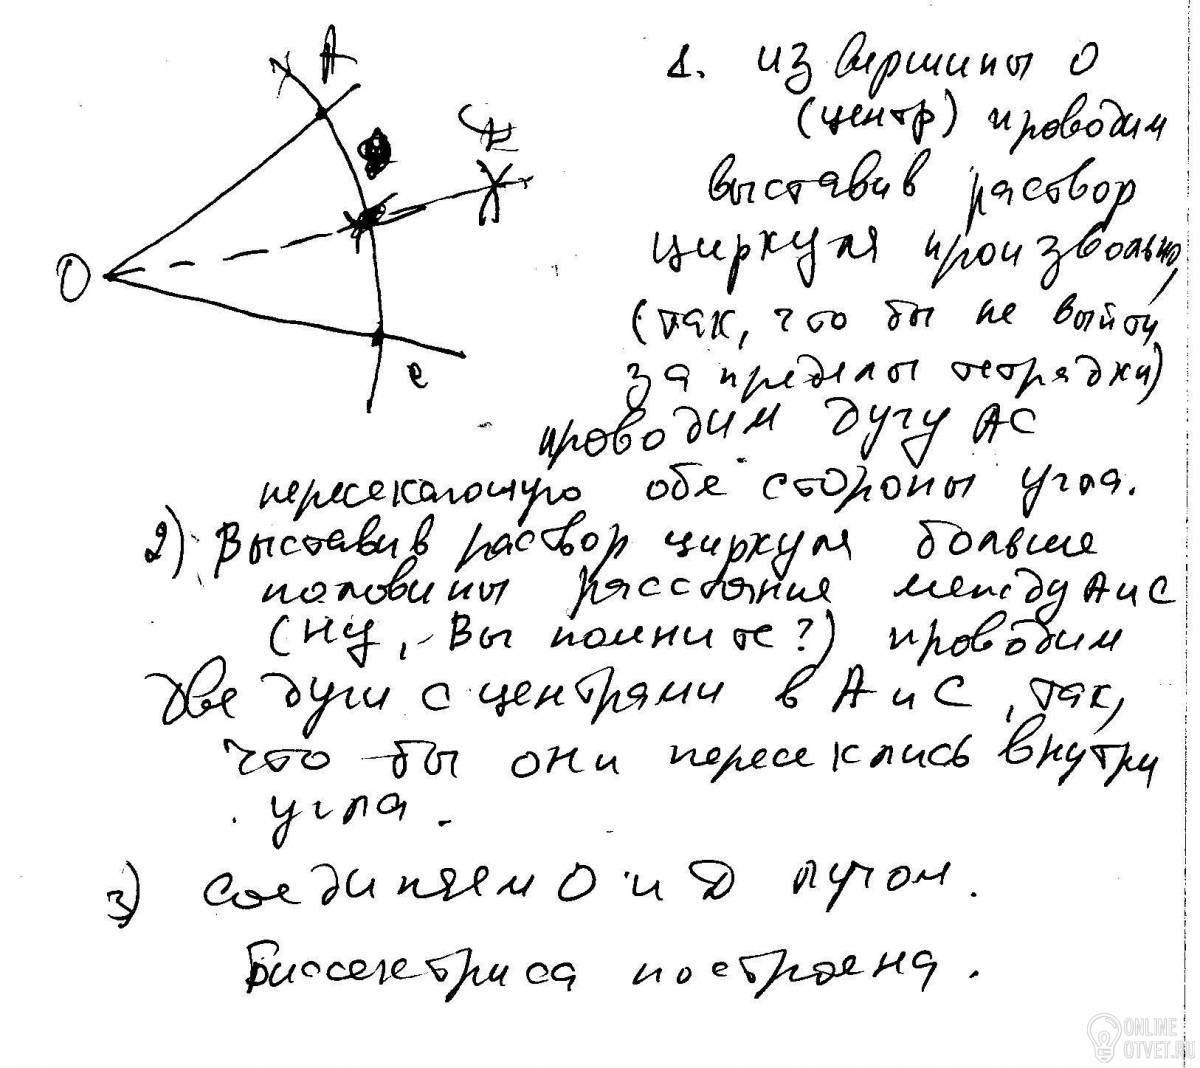 A
O
с
1. из вершины О
(центр) проводим
выставив раствор
циркуля произвольно,
(так, что бы не выйти
за пределы тетрадки)
проводим дугу АС
пересекающую обе стороны угла.
2) Выставив раствор циркуля больше
половины расстояние между А и С
(Ну, - Вы помните?) проводим
две дуги с центрами в А и С, так,
что бы они пересеклись внутри
угла.
3) Соединяем О и D лучом.
Биссектриса построена.
ONLINE
OTVET.RU